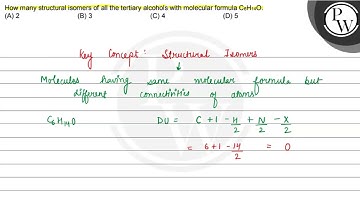 How many structural isomers of all the tertiary alcohols with molecular formula C₆H₁₄O.
(A) 2 (B) 3 (C) 4 (D) 5
Key Concept: Structural Isomers
↓
Molecules having same molecular formula but
different connectivities of atoms
C₆H₁₄O DU = C + 1 - H/2 + N/2 - X/2
= 6 + 1 - 14/2 = 0